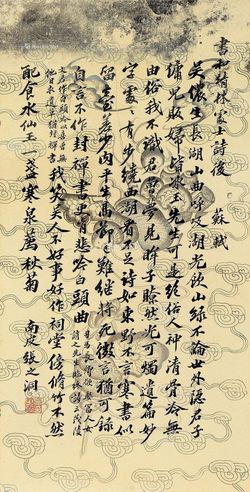 書和靖林處士詩後 蘇軾
吳儂生長湖山曲呼吸湖光飲山綠不論世外隱君子
傭兒販婦皆冰玉先生可是絕俗人神清骨冷無
由俗我不識君曾夢見眸子瞭然光可燭遺篇妙
字處處有步繞西湖看不足詩如東野不言寒書似
留臺差少肉平生高節已難繼將死微言猶可錄
自言不作封禪書更肯悲吟白頭曲
我笑吳人不好事好作祠堂傍脩竹不然
配食水仙王一盞寒泉薦秋菊 南皮張之洞